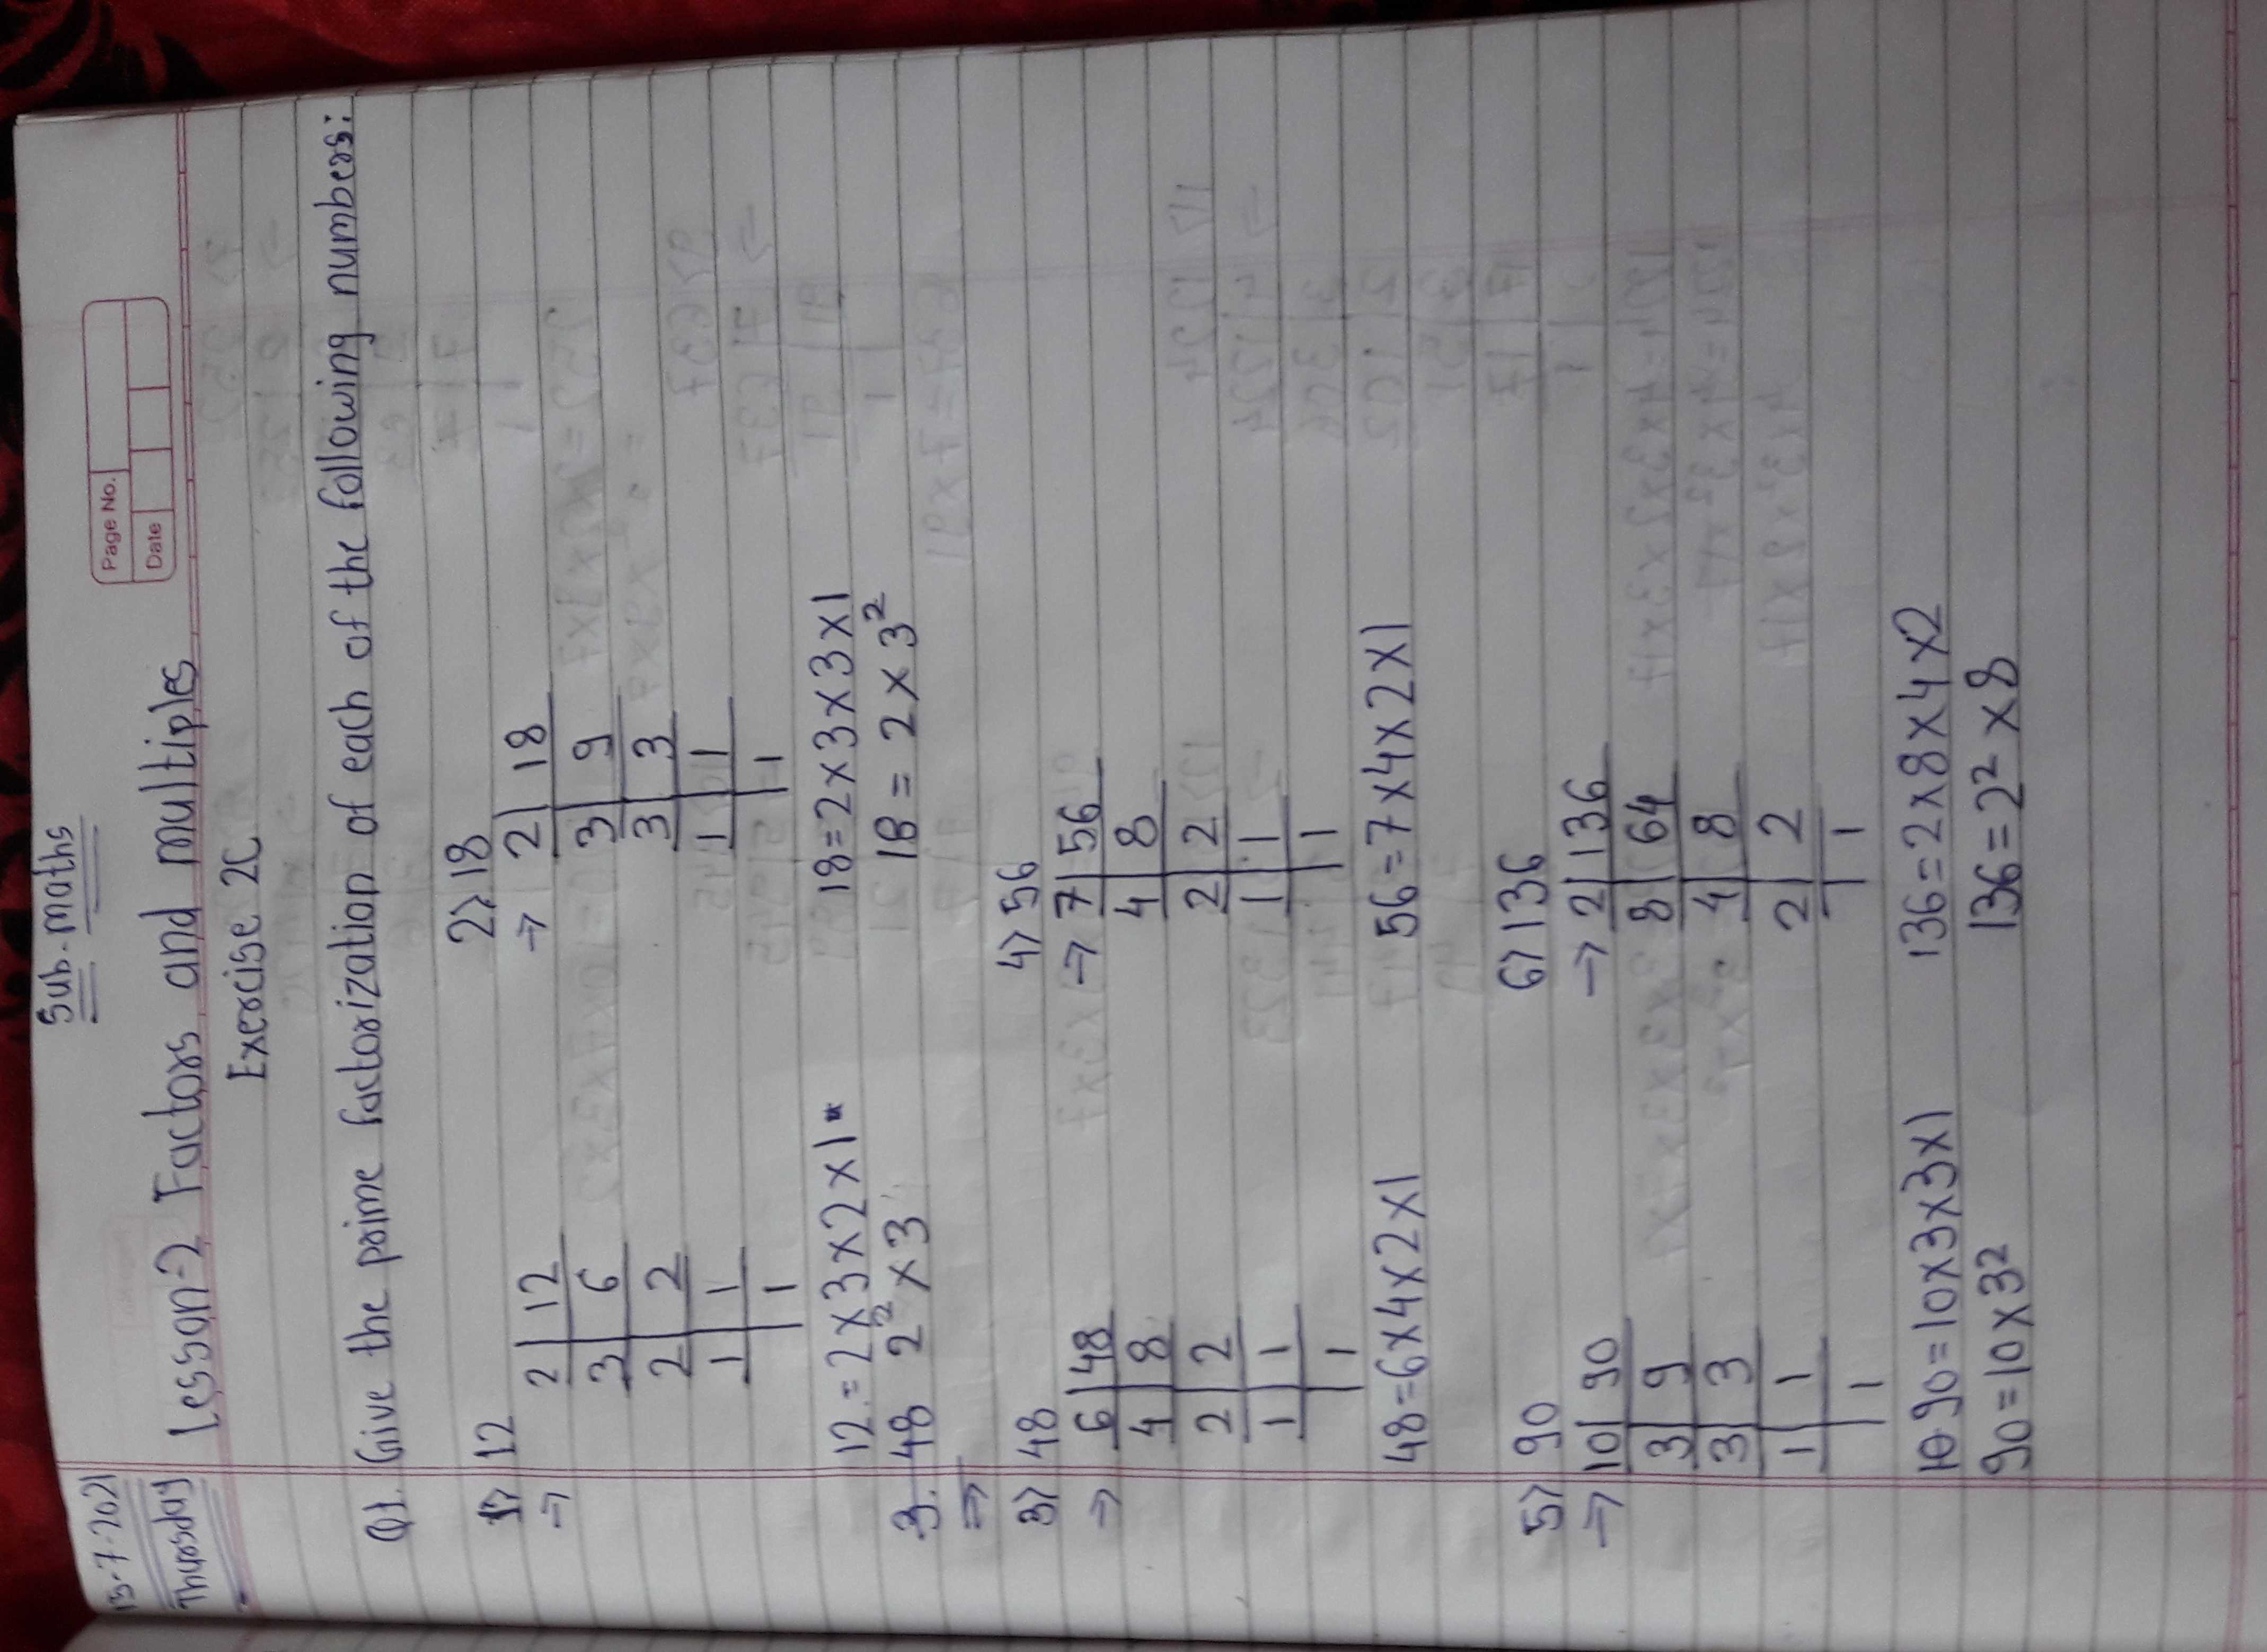 Sub. maths
13-7-2021
Page No.
Thursday
Lesson-2 Factors and multiples
Date
Exercise 2C
Q1. Give the prime factorization of each of the following numbers:
1> 12
2> 18
→ 2 | 12
→ 2 | 18
3 | 6
3 | 9
2 | 2
3 | 3
1 | 1
1 | 1
1
1
12 = 2×3×2×1
18 = 2×3×3×1
3. 48 2² ×3
18 = 2×3²
→
3> 48
4> 56
→ 6 | 48
→ 7 | 56
4 | 8
4 | 8
2 | 2
2 | 2
1 | 1
1 | 1
1
1
48 = 6×4×2×1
56 = 7×4×2×1
5> 90
6> 136
→ 10 | 90
→ 2 | 136
3 | 9
8 | 64
3 | 3
4 | 8
1 | 1
2 | 2
1
1
10 90 = 10×3×3×1
136 = 2×8×4×2
90 = 10×3²
136 = 2² ×8